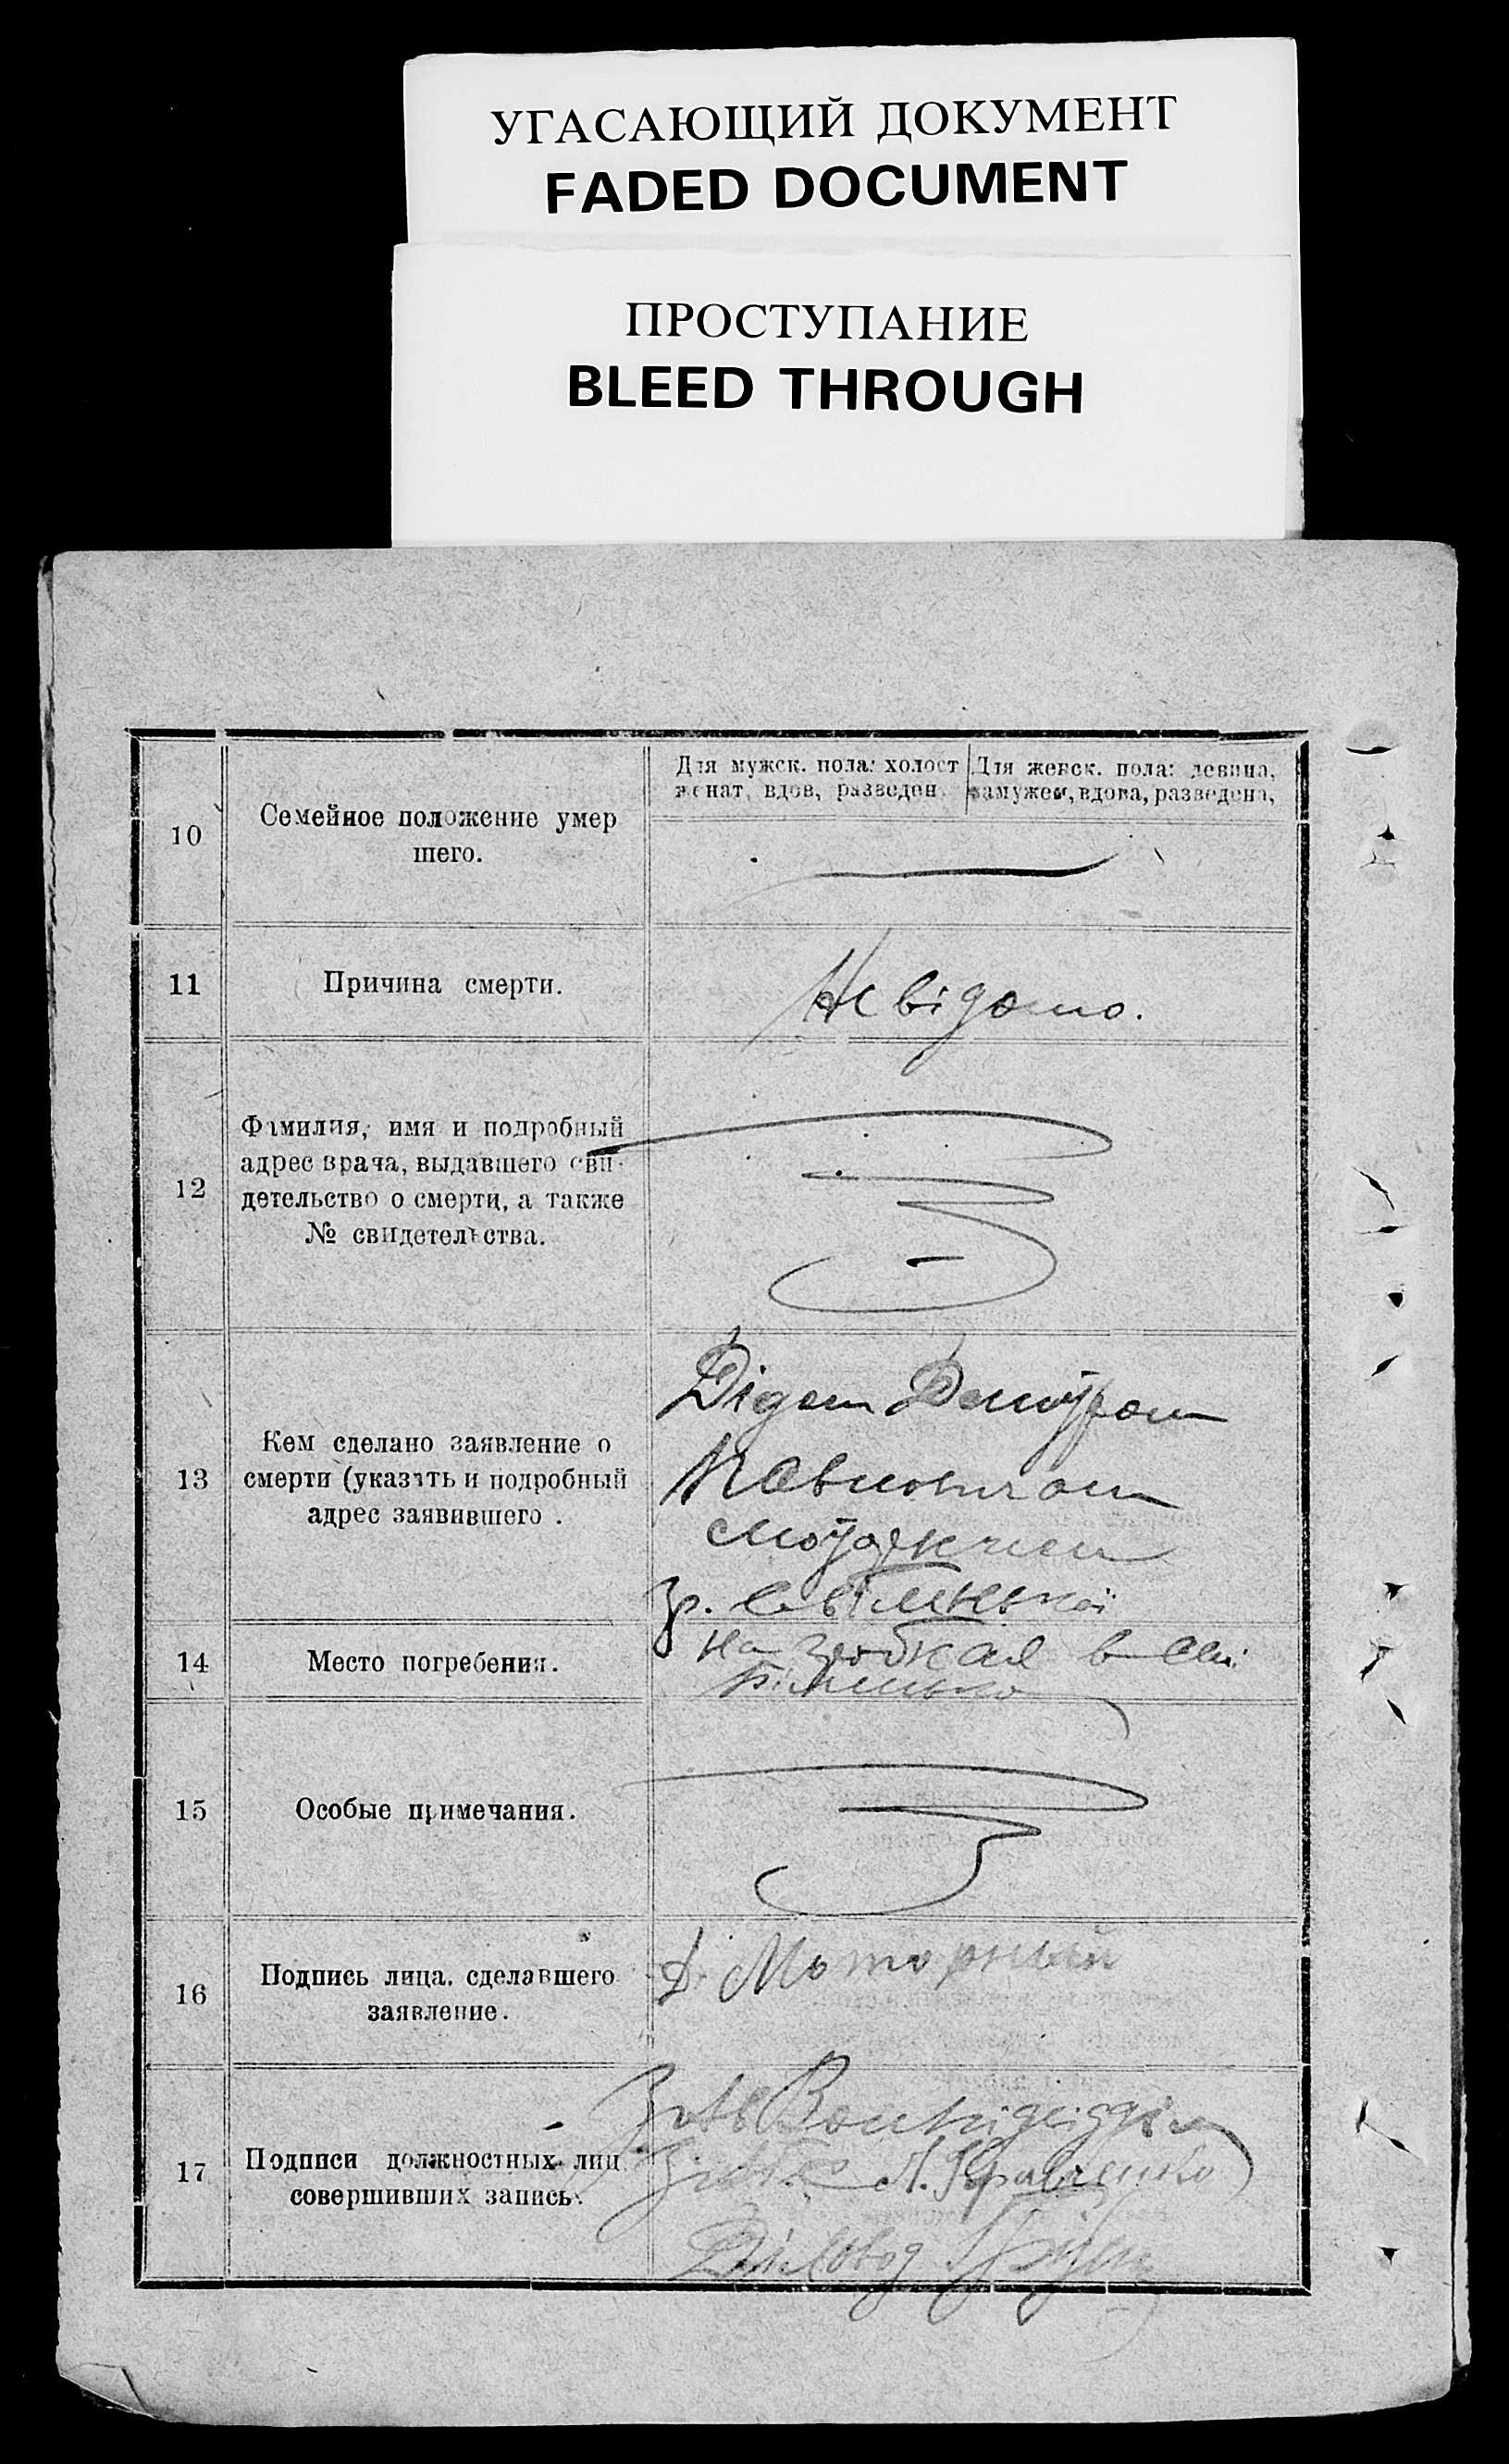 УГАСАЮЩИЙ ДОКУМЕНТ
FADED DOCUMENT
ПРОСТУПАНИЕ
BLEED THROUGH
10
Семейное положение умер
шего.
Для мужск. пола: холост
женат, вдов, разведен
Для женск. пола: девица,
замужем, вдова, разведена,
11
Причина смерти.
Невідомо.
12
Фамилия, имя и подробный
адрес врача, выдавшего сви-
детельство о смерти, а также
№ свидетельства.
13
Кем сделано заявление о
смерти (указать и подробный
адрес заявившего .
Дідом
гр.
14
Место погребения.
на в
15
Особые примечания.
16
Подпись лица, сделавшего
заявление.
Д. Моторный
17
Подписи должностных лиц
совершивших запись.
Кравченко
Діловод